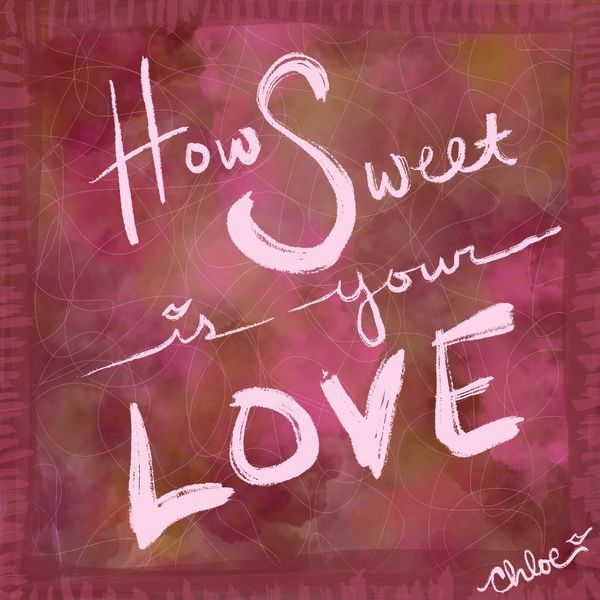 How Sweet
is your
LOVE
Chloe